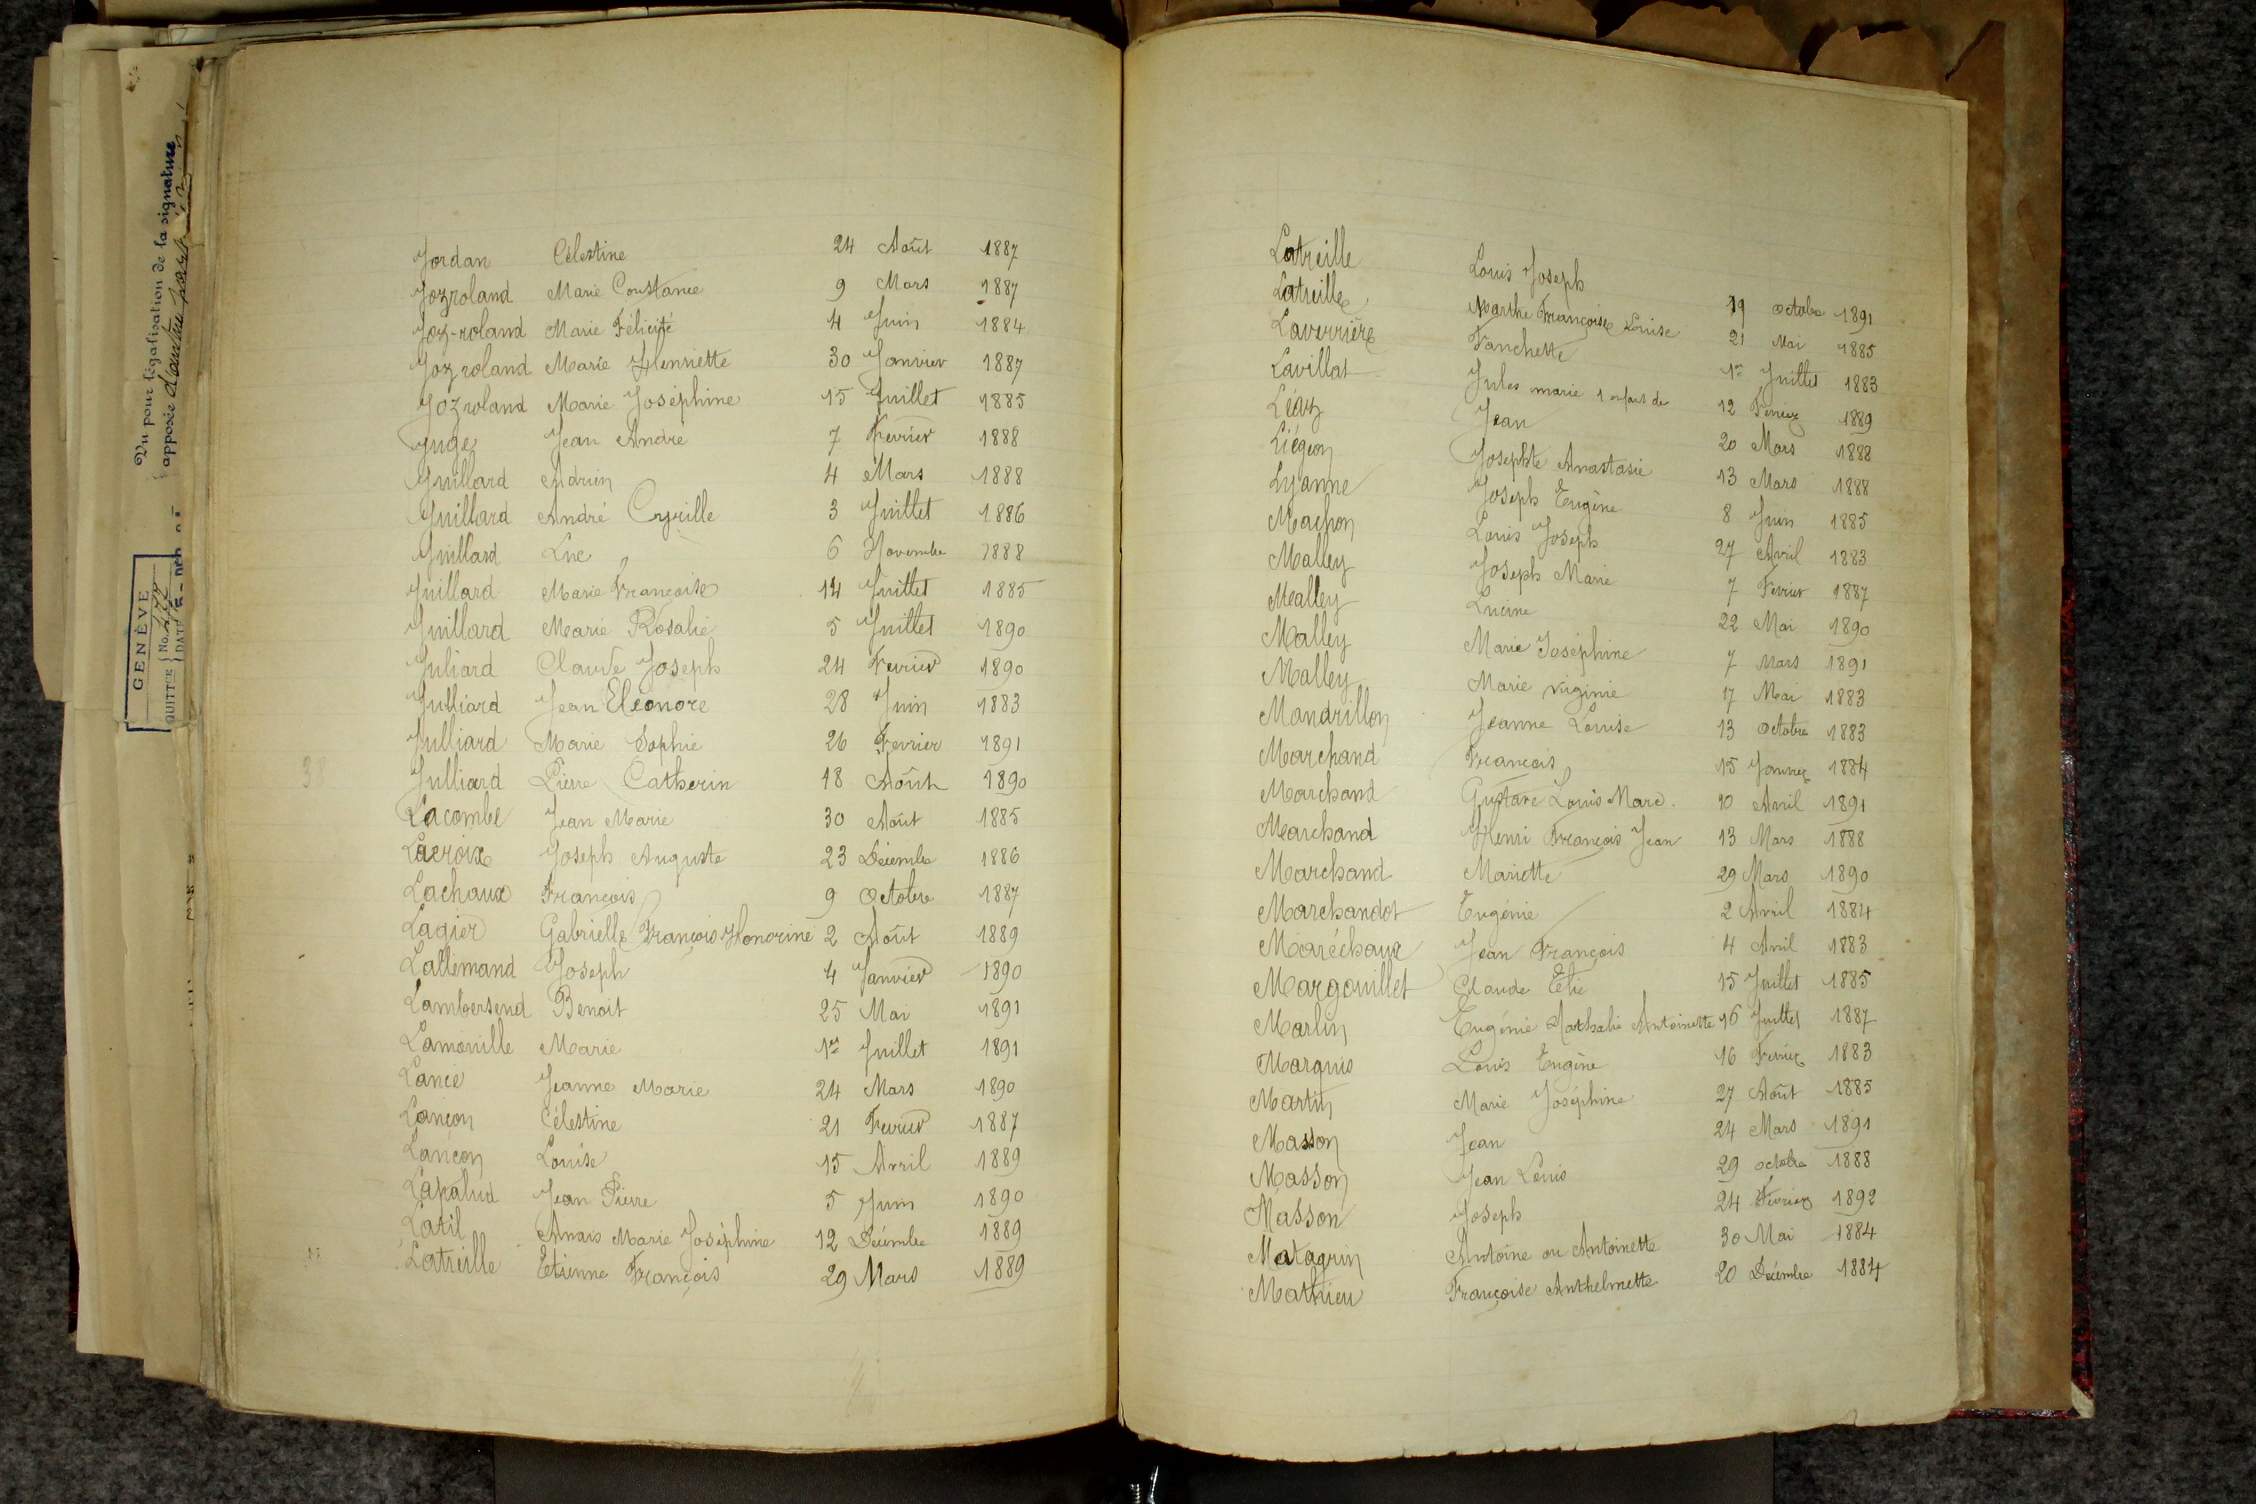 Vu pour légalisation de la signature
apposée d'autre part
GENÈVE
QUITTCE No.
DATE
Jordan Célestine 24 Août 1887
Jozroland Marie Constance 9 Mars 1887
Joz-roland Marie Félicité 4 Juin 1884
Jozroland Marie Henriette 30 Janvier 1887
Jozroland Marie Joséphine 15 Juillet 1885
Juge Jean André 7 Fevrier 1888
Juillard Adrien 4 Mars 1888
Juillard André Cyrille 3 Juillet 1886
Juillard Luc 6 Novembre 1888
Juillard Marie Françoise 14 Juillet 1885
Juillard Marie Rosalie 5 Juillet 1890
Juliard Claude Joseph 24 Fevrier 1890
Julliard Jean Eléonore 28 Juin 1883
Julliard Marie Sophie 26 Fevrier 1891
38 Julliard Pierre Catherin 18 Août 1890
Lacombe Jean Marie 30 Août 1885
Lacroix Joseph Auguste 23 Décembre 1886
Lachaux François 9 Octobre 1887
Lagier Gabrielle François Honorine 2 Août 1889
Lallemand Joseph 4 Janvier 1890
Lambersend Benoit 25 Mai 1891
Lamouille Marie 1er Juillet 1891
Lancé Jeanne Marie 24 Mars 1890
Lançon Célestine 21 Fevrier 1887
Lançon Louise 15 Avril 1889
Lapalud Jean Pierre 5 Juin 1890
Latil Anais Marie Joséphine 12 Décembre 1889
Latreille Etienne François 29 Mars 1889
Latreille Louis Joseph 19 octobre 1891
Latreille Marthe Françoise Louise 21 Mai 1885
Laverrière Fanchette 1er Juillet 1883
Lavillat Jules marie 1 enfant de 12 Fevrier 1889
Léaz Jean 20 Mars 1888
Liégeon Josephte Anastasie 13 Mars 1888
Lyanne Joseph Eugène 8 Juin 1885
Machon Louis Joseph 27 Avril 1883
Malley Joseph Marie 7 Fevrier 1887
Malley Lucine 22 Mai 1890
Malley Marie Joséphine 7 Mars 1891
Malley Marie virginie 17 Mai 1883
Mandrillon Jeanne Louise 13 octobre 1883
Marchand François 15 Janvier 1884
Marchand Gustave Louis Marc. 10 Avril 1891
Marchand Henri François Jean 13 Mars 1888
Marchand Mariette 29 Mars 1890
Marchandot Eugénie 2 Avril 1884
Maréchaux Jean François 4 Avril 1883
Margouillet Claude Elie 15 Juillet 1885
Marlin Eugénie Nathalie Antoinette 16 Juillet 1887
Marquis Louis Eugène 16 Fevrier 1883
Martin Marie Joséphine 27 Août 1885
Masson Jean 24 Mars 1891
Masson Jean Louis 29 octobre 1888
Masson Joseph 24 Fevrier 1892
Matagrin Antoine ou Antoinette 30 Mai 1884
Mathieu Françoise Anthelmette 20 Décembre 1884